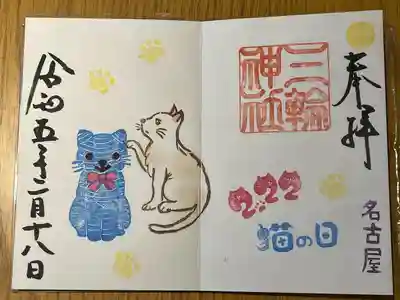 奉拝
三輪
神社
2.22
猫の日
名古屋
令和五年二月十八日